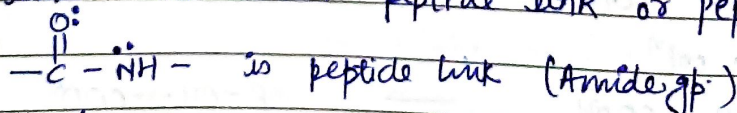 or
O:
||
– C – N̈H – is peptide link (Amide gp.)